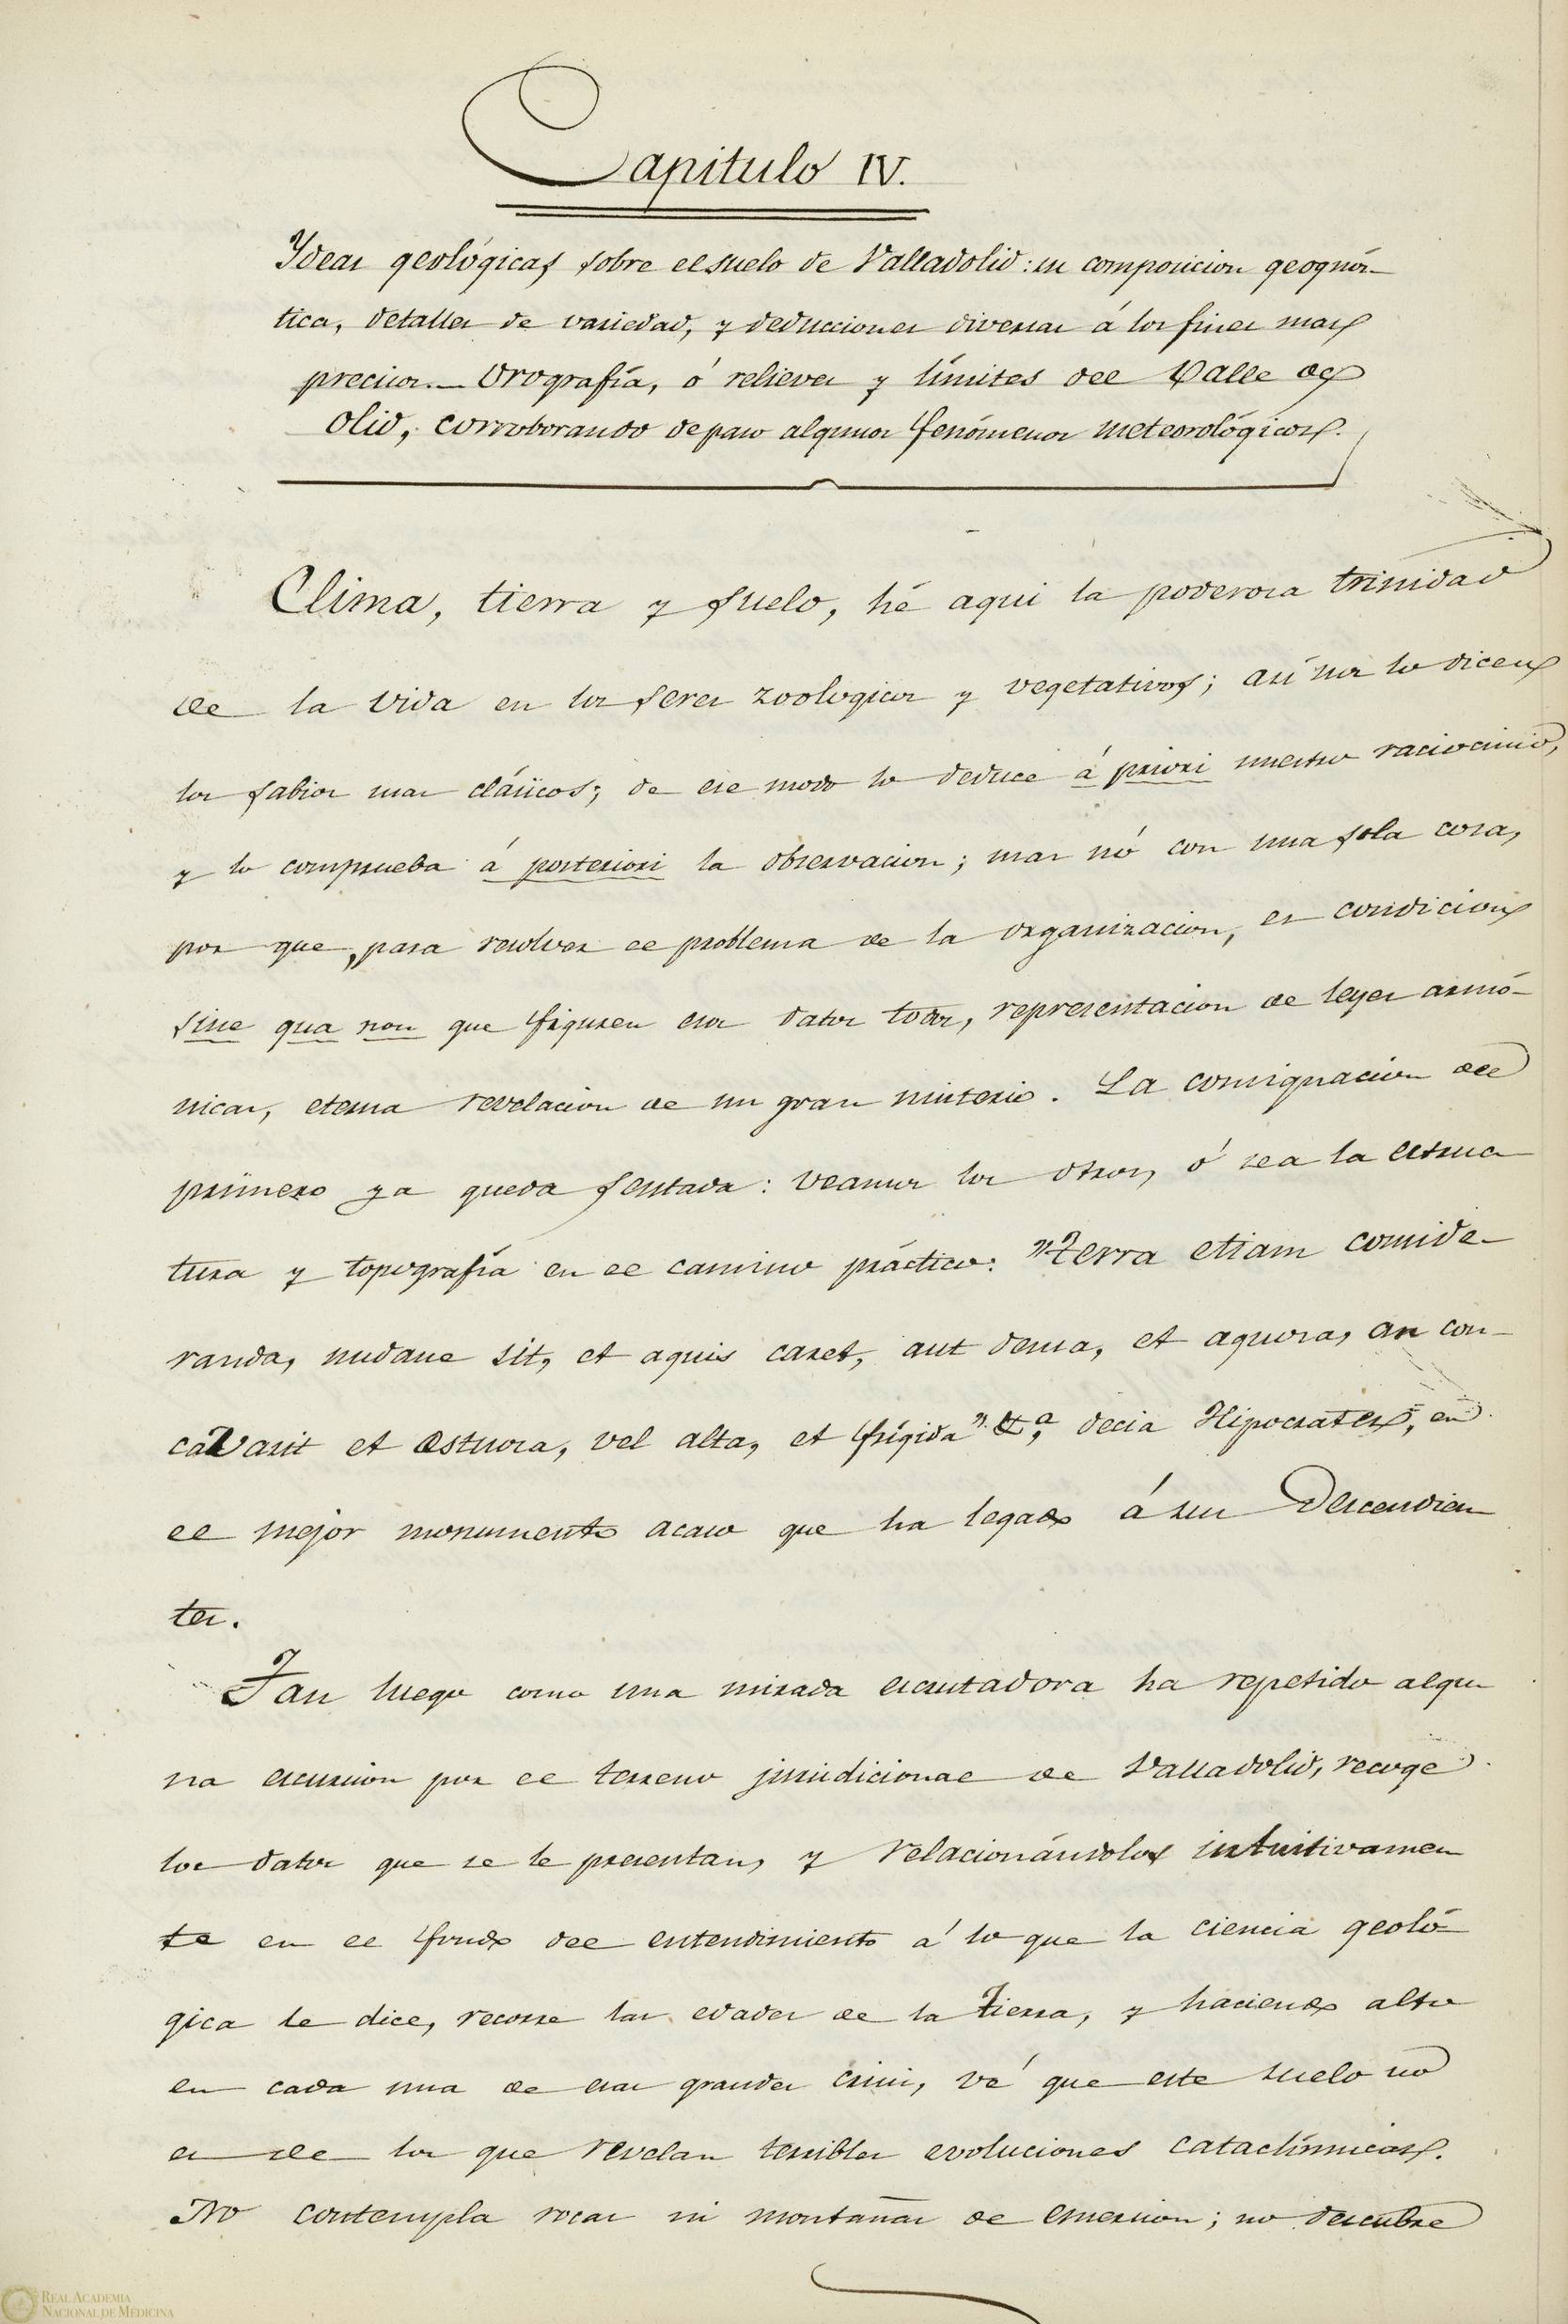 Capitulo IV.
Ydeas geológicas sobre el suelo de Valladolid: su composicion geognós-
tica, detalles de variedad, y deducciones diversas á los fines mas
precisos. — Orografía, ó relieves y límites del Valle de
Olid, corroborando de paso algunos fenómenos meteorológicos.
Clima, tierra y suelo, hé aqui la poderosa trinidad
de la vida en los seres zoologicos y vegetativos; así nos lo dicen
los sabios mas clásicos; de ese modo lo deduce á priori nuestro raciocinio,
y lo comprueba á posteriori la observacion; mas nó con una sola cosa,
por que, para resolver el problema de la organizacion, es condicion
sine qua non que figuren esos datos todos, representacion de leyes armó-
nicas, eterna revelacion de un gran misterio. La consignacion del
primero ya queda sentada: veamos los otros, ó sea la estruc
tura y topografía en el camino práctico: "terra etiam conside-
randa, nudane sit, et aquis caret, aut densa, et aquosa, an con-
cavasit et æstuosa, vel alta, et frígida" &.ª, decia Hipocrates, en
el mejor monumento acaso que ha legado á sus Descendien
tes.
Tan luego como una mirada escrutadora ha repetido algu
na escursion por el terreno jurisdicional de Valladolid, recoge
los datos que se le presentan, y relacionándolos intuitivamen
te en el fondo del entendimiento á lo que la ciencia geoló-
gica le dice, recorre las edades de la Tierra, y haciendo alto
en cada una de esas grandes crisis, vé que este suelo no
es de los que revelan terribles evoluciones cataclísmicas.
No contempla rocas ni montañas de emersion; no descubre
REAL ACADEMIA
NACIONAL DE MEDICINA